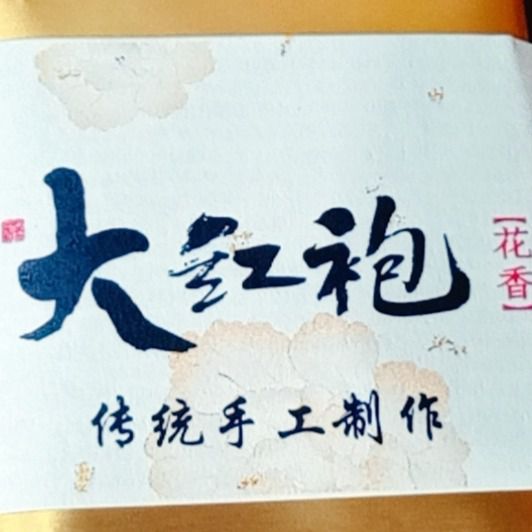 大红袍
【花香】
传统手工制作